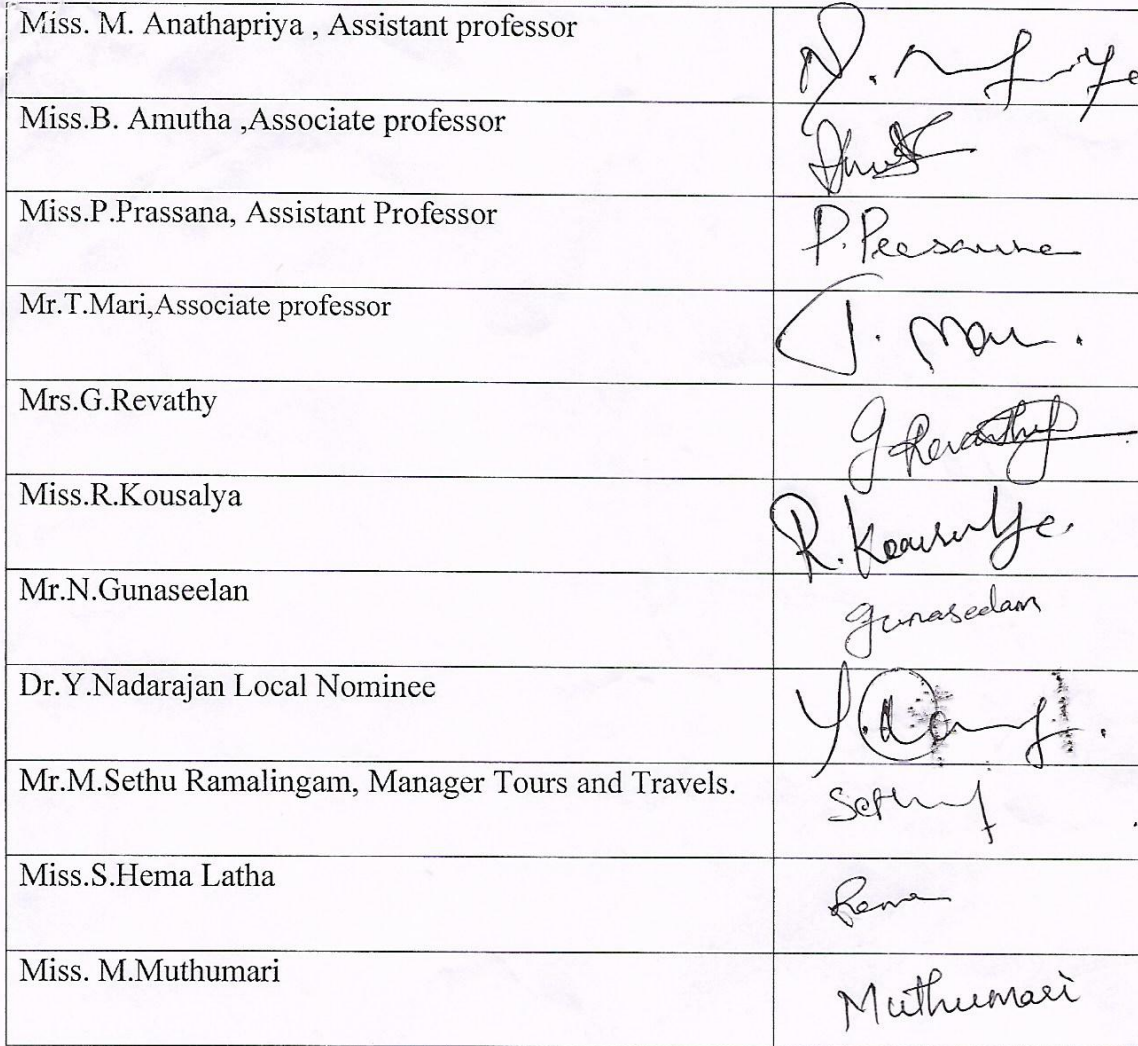 Miss. M. Anathapriya , Assistant professor
Miss.B. Amutha ,Associate professor
Miss.P.Prassana, Assistant Professor P.Prasanna
Mr.T.Mari,Associate professor T. Mari.
Mrs.G.Revathy G Revathy
Miss.R.Kousalya R.Kousalya.
Mr.N.Gunaseelan Gunaseelan
Dr.Y.Nadarajan Local Nominee
Mr.M.Sethu Ramalingam, Manager Tours and Travels. Sethu
Miss.S.Hema Latha Hema
Miss. M.Muthumari Muthumari